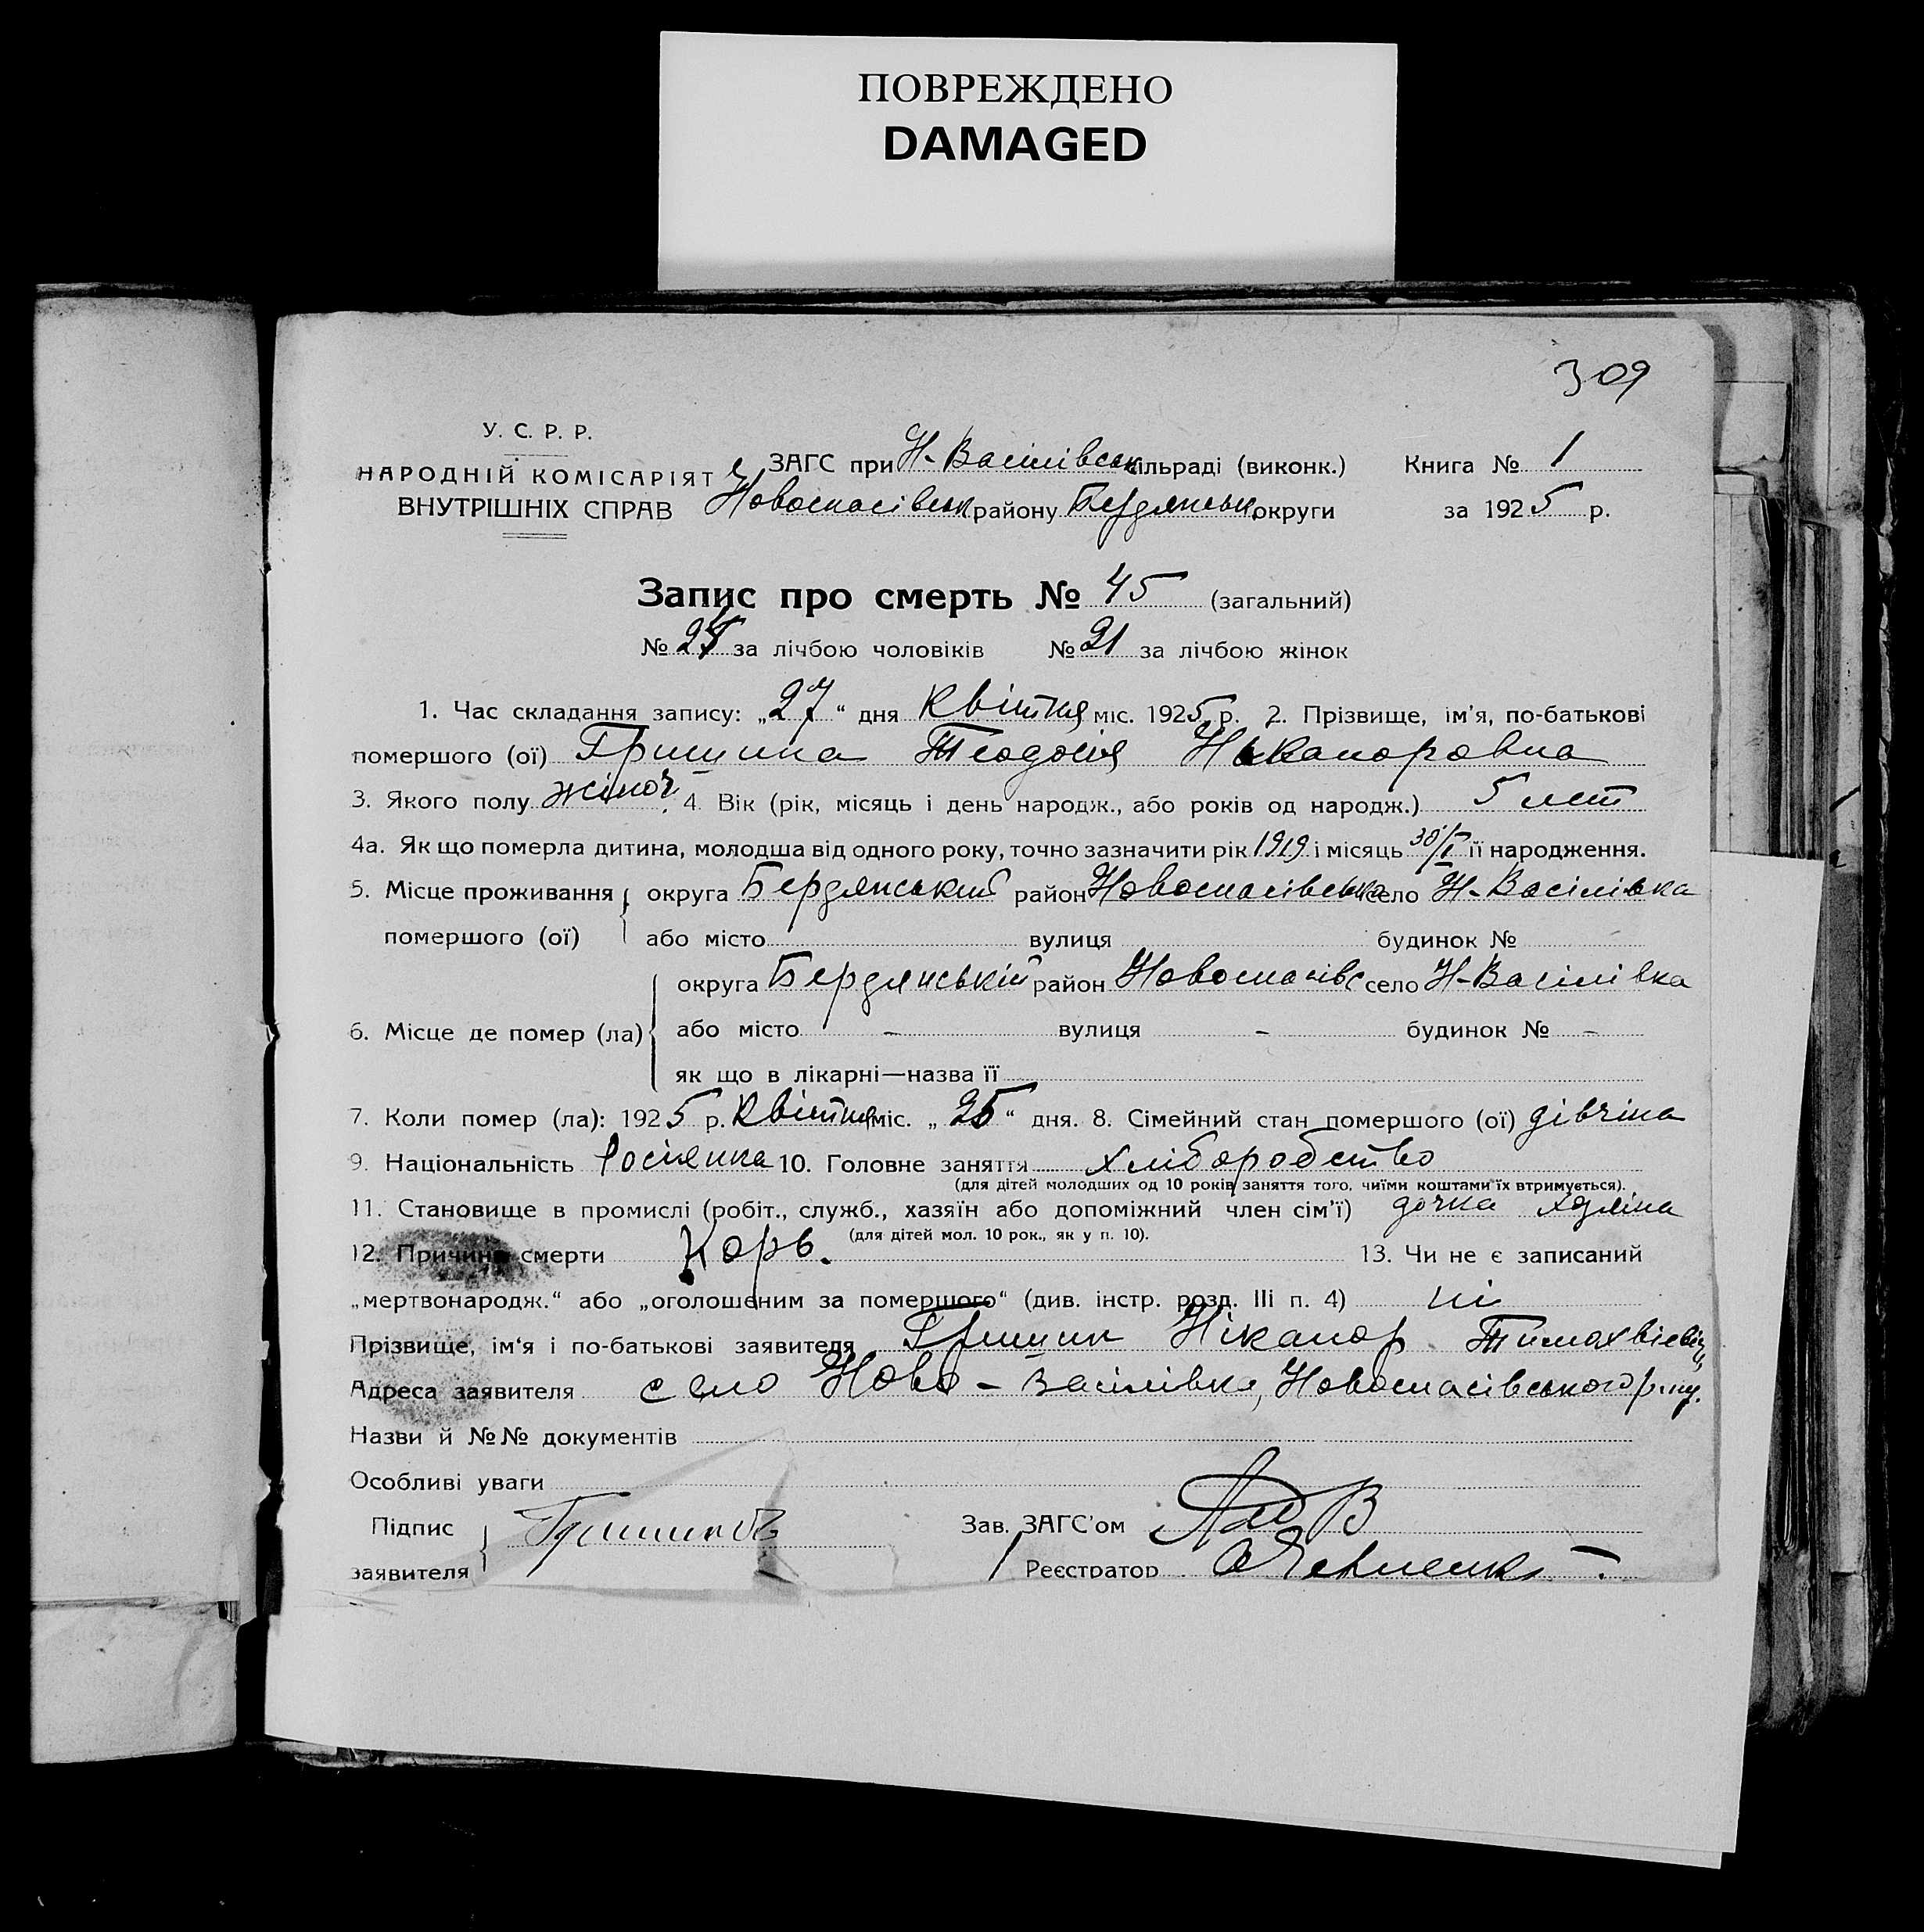 ПОВРЕЖДЕНО
DAMAGED
309
У. С. Р. Р.
НАРОДНІЙ КОМІСАРІЯТ
ВНУТРІШНІХ СПРАВ
ЗАГС при Н-Васілівськ сільраді (виконк.) Книга № 1
Новоспасівськ району Бердянськ. округи за 1925 р.
Запис про смерть № 45 (загальний)
№ 24 за лічбою чоловіків № 21 за лічбою жінок
1. Час складання запису: „27“ дня Квітня міс. 1925 р. 2. Прізвище, ім'я, по-батькові
помершого (ої) Гришина Теодосія Ніканоровна
3. Якого полу жіноч. 4. Вік (рік, місяць і день народж., або років од народж.) 5 лет
4а. Як що померла дитина, молодша від одного року, точно зазначити рік 1919 і місяць 30/I її народження.
5. Місце проживання округа Бердянський район Новоспасівська село Н-Васілівка
помершого (ої) або місто вулиця будинок №
округа Бердянській район Новоспасівс село Н-Васілівка
6. Місце де помер (ла) або місто - вулиця - будинок № -
як що в лікарні—назва її
7. Коли помер (ла): 1925 р. Квітня міс. „25“ дня. 8. Сімейний стан помершого (ої) дівчіна
9. Національність Росіянка 10. Головне заняття хліборобство
(для дітей молодших од 10 років заняття того, чиїми коштами їх втримується).
11. Становище в промислі (робіт., служб., хазяїн або допоміжний член сім'ї) дочка хазяїна
(для дітей мол. 10 рок., як у п. 10).
12. Причина смерти Корь. 13. Чи не є записаний
„мертвонародж.“ або „оголошеним за помершого“ (див. інстр. розд. III п. 4) ні
Прізвище, ім'я і по-батькові заявителя Гришин Ніканор Тимохвієвіч
Адреса заявителя село Ново-Васілівка, Новоспасівського р-ну.
Назви й №№ документів
Особливі уваги
Підпис заявителя Гришинъ
Зав. ЗАГС'ом
Реєстратор